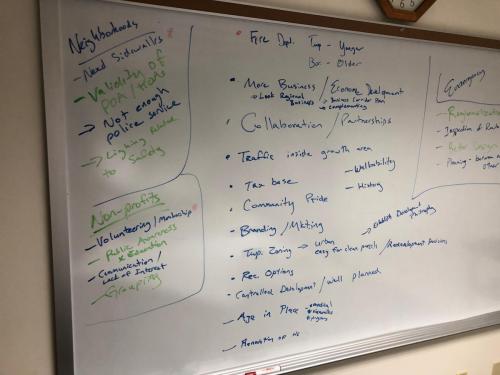 Neighborhoods
- Need Sidewalks
- Validity of POA/HOAs
→ Not enough police service
→ Lighting Related to Safety
Non-profits
- Volunteering/Membership
- Public Awareness & Education
- Communication/Lack of Interest
- Grouping
Fire Dept. Twp - Younger
Bor - Older
• More Business / Economic Development
→ Look Regional Business
→ Business Corridor Plan
→ Complementing
• Collaboration/Partnerships
• Traffic inside growth area
- Walkability
• Tax base
- History
• Community Pride
→ Establish Development Philosophy
• Branding/Mkting
• Twp. Zoning → urban
easy for clean / Redevelopment
• Rec. Options
• Controlled Development / Well planned
- Age in Place
- medical
- Retention of
- Regionalization
- Inspection of
- Planning - Between
other